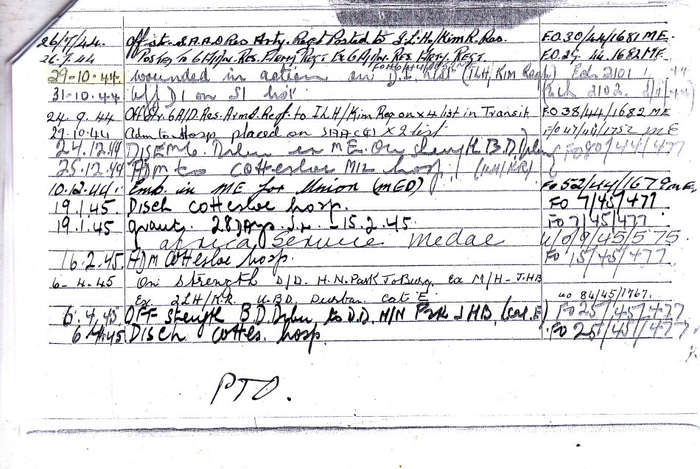 26/7/44. Off str. S.A.A.D Res Arty. Regt Posted to I.L.H/Kim R. Res. F.O.30/44/1681 M.E.
Posted to 6 Regt. F.O. 1682 M.E.
29-10.44 wounded in action on (ILH, Kim Regt) 2101
31-10.44 off DI on SI list 2102
24.9.44 Off Str. 6 A/D.Res. Armd. Regt. to ILH/Kim Rep on x4 list in Transit F.O 38/44/1682 M E
29.10.44 Adm to Hosp. placed on x 2 list 1752 M E
24.12.44 DISEMB. Dbn ex M.E. On strength B.D. Dbn FO 80/44/477
25.12.44 ADM to Cottesloe Mil hosp. (ILH/KR)
10.12.44. Emb. in ME for Union (MED) Fo 52/44/1679 M.E.
19.1.45 Disch Cottesloe hosp. FO 7/45/477
19.1.45 grant. 28 days - 15.2.45 FO 7/45/477
africa Service Medal u/o 9/45/575
16.2.45 ADM Cottesloe hosp. Fo 15/45/477.
6-4-45 On Strength D/D. H.N. Park Jo'Burg, Ex M/H-JHB
Ex ILH/KR U.B.D. Durban. Cat E. uo 84/45/1767.
6.4.45 Off Strength B.D. Dbn to D.D. H/N Park JHB, (Cat. E) Fo 25/45/477
6.4.45 Disch Cottes. hosp. Fo 25/45/477
PTO.